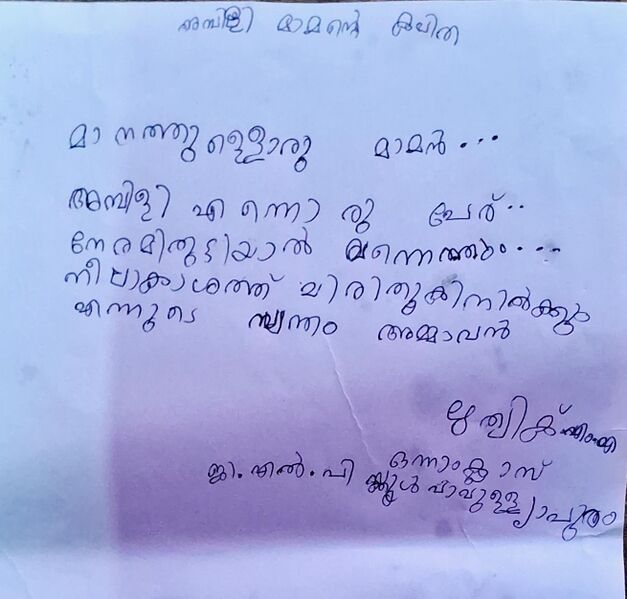 അമ്പിളി മാമന്റെ കവിത
മാനത്തുള്ളൊരു മാമൻ...
അമ്പിളി എന്നൊരു പേര്..
നേരമിരുട്ടിയാൽ വന്നെത്തും....
നീലാകാശത്ത് ചിരിതൂകിനിൽക്കും
എന്നുടെ സ്വന്തം അമ്മാവൻ
ഋത്വിക്
ഒന്നാംക്ലാസ്
ജി.എൽ.പി സ്കൂൾ